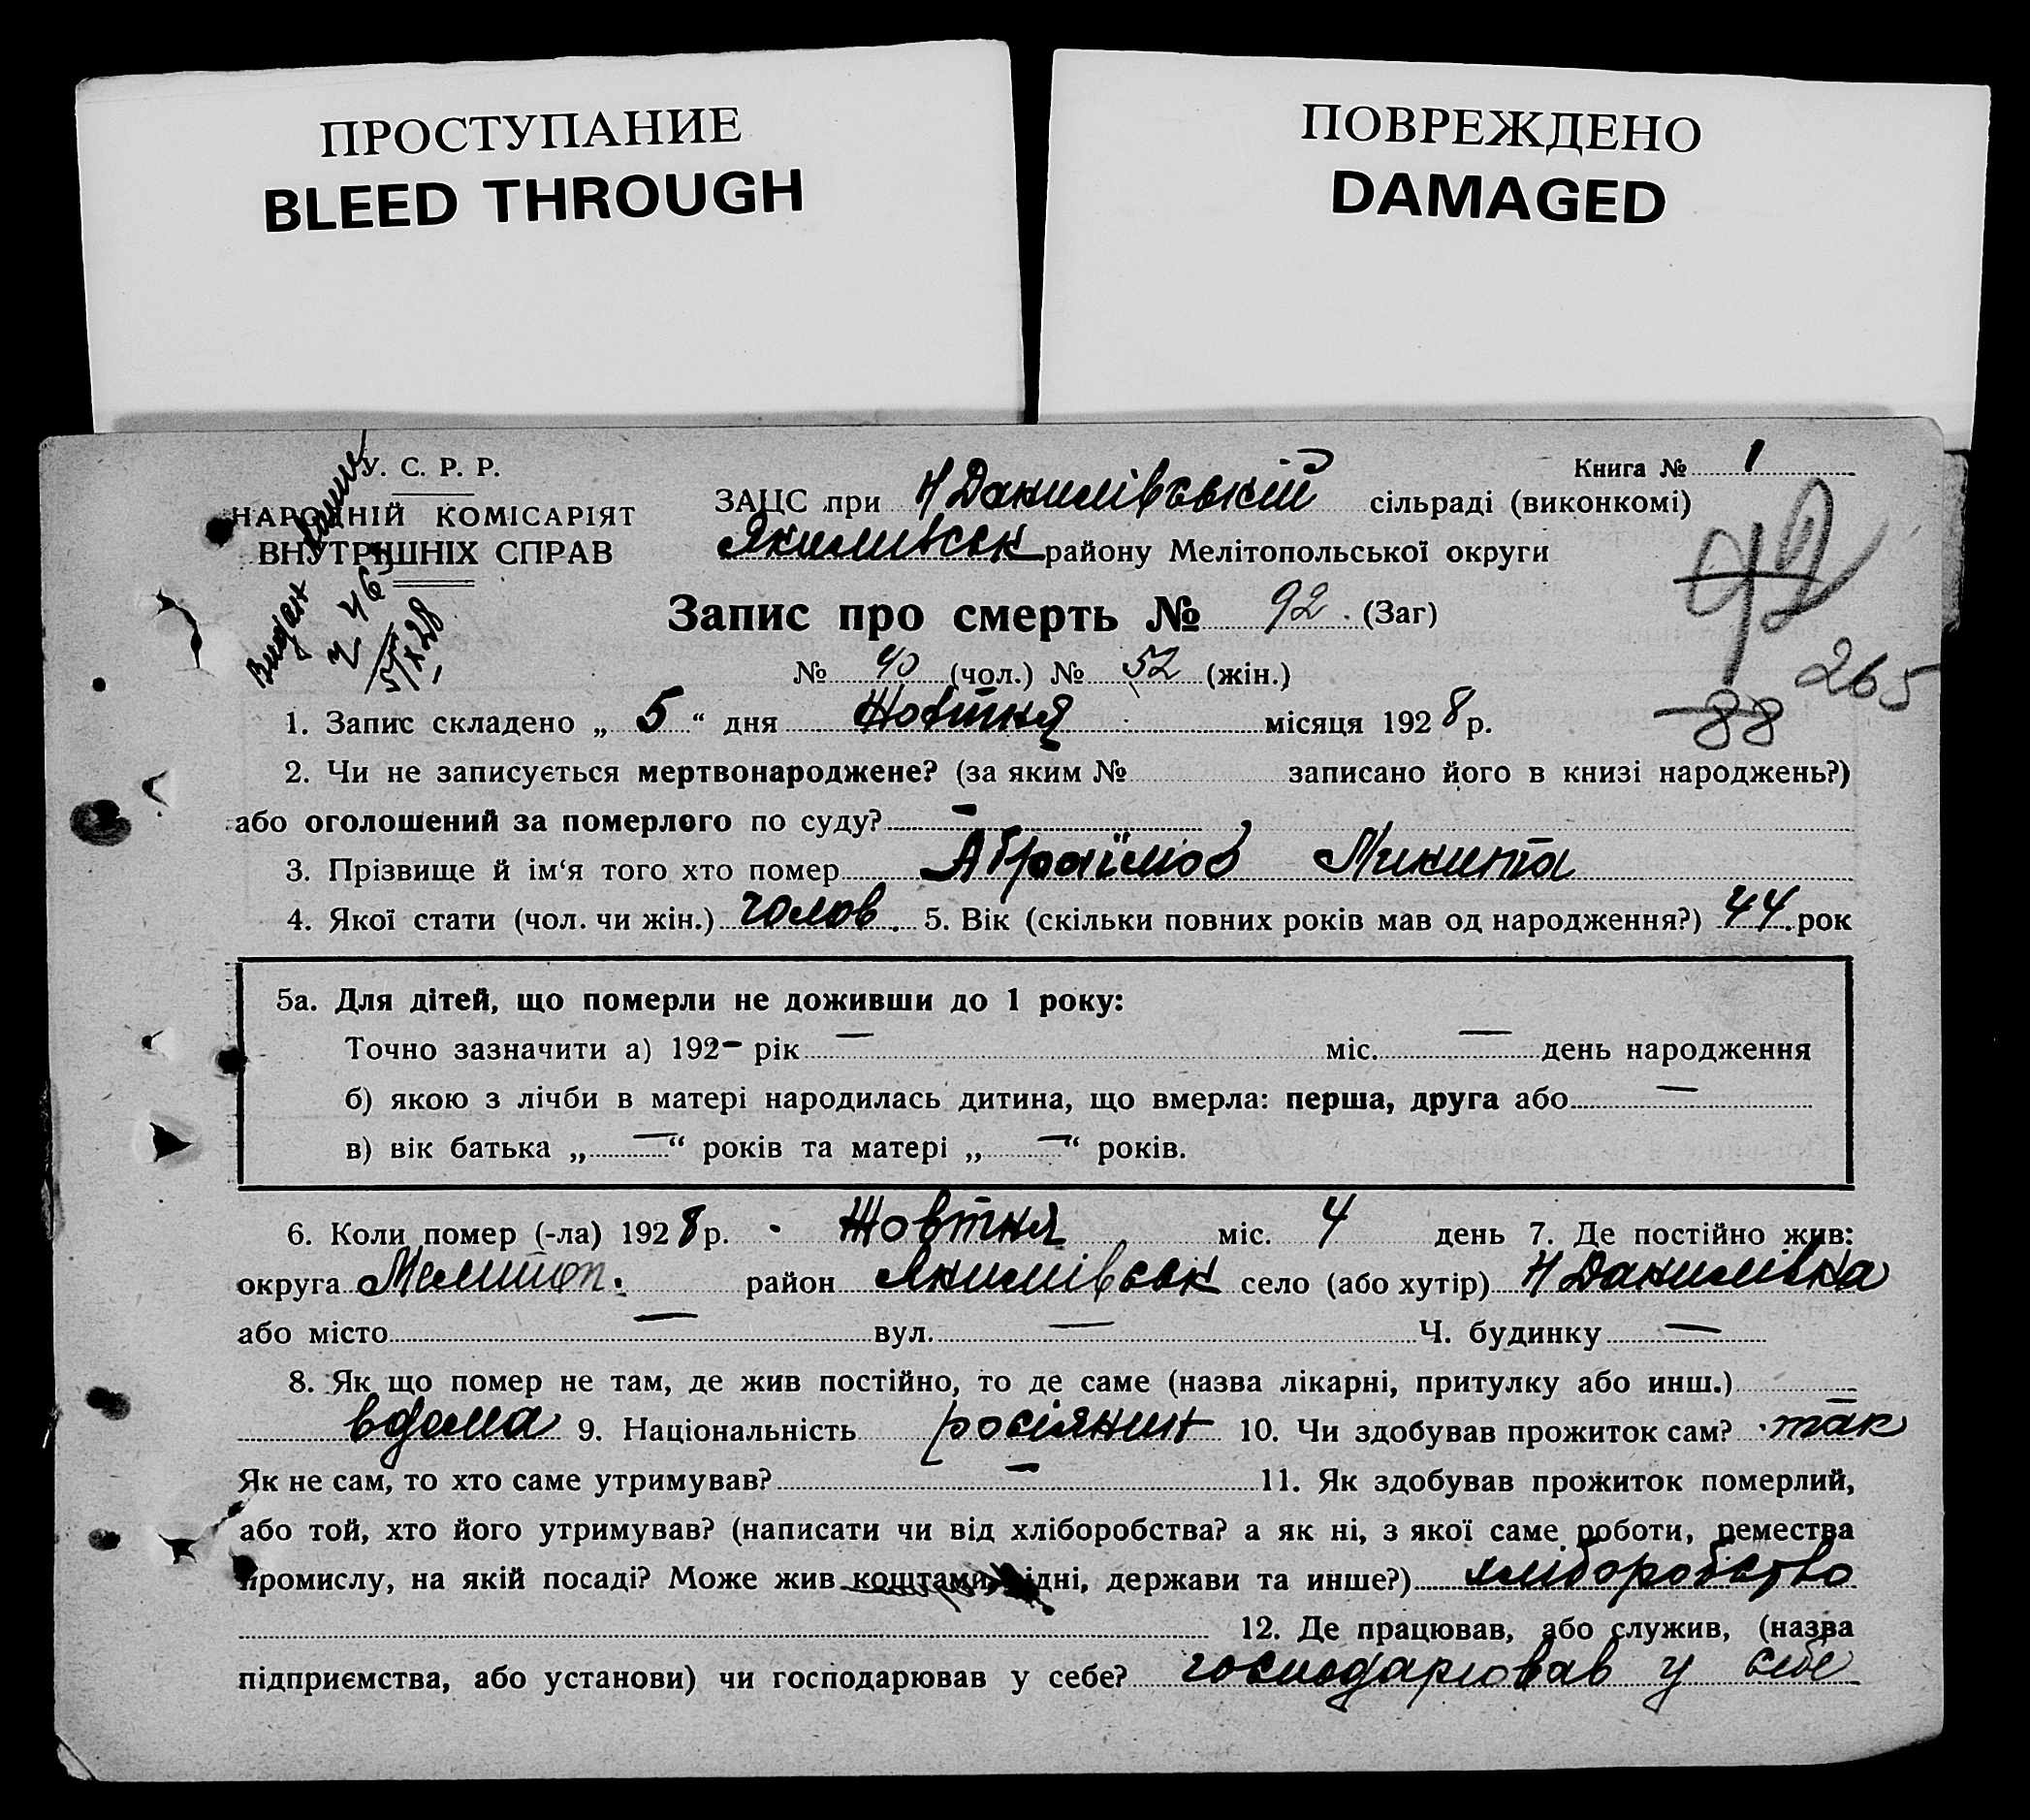 ПРОСТУПАНИЕ
BLEED THROUGH
ПОВРЕЖДЕНО
DAMAGED
У. С. Р. Р.
НАРОДНІЙ КОМІСАРІЯТ
ВНУТРІШНІХ СПРАВ
Видан
5/X 28
Книга № 1
ЗАЦС при Н Данилівській сільраді (виконкомі)
Якимівськ району Мелітопольської округи
Запис про смерть № 92 (Заг)
№ 40 (чол.) № 52 (жін.)
92
265
88
1. Запис складено „ 5 “ дня Жовтня місяця 1928 р.
2. Чи не записується мертвонароджене? (за яким № записано його в книзі народжень?)
або оголошений за померлого по суду? —
3. Прізвище й ім‘я того хто помер Абраїмов Микита
4. Якої стати (чол. чи жін.) чолов. 5. Вік (скільки повних років мав од народження?) 44 рок
5а. Для дітей, що померли не доживши до 1 року:
Точно зазначити а) 192– рік — міс. — день народження
б) якою з лічби в матері народилась дитина, що вмерла: перша, друга або —
в) вік батька „ — “ років та матері „ — “ років.
6. Коли помер (-ла) 1928 р. Жовтня міс. 4 день 7. Де постійно жив:
округа Мелитоп. район Якимівськ село (або хутір) Н Данилівка
або місто — вул. — Ч. будинку —
8. Як що помер не там, де жив постійно, то де саме (назва лікарні, притулку або инш.)
вдома 9. Національність росіянин 10. Чи здобував прожиток сам? так
Як не сам, то хто саме утримував? — 11. Як здобував прожиток померлий,
або той, хто його утримував? (написати чи від хліборобства? а як ні, з якої саме роботи, ремества
промислу, на якій посаді? Може жив коштами рідні, держави та инше?) хліборобство
12. Де працював, або служив, (назва
підприємства, або установи) чи господарював у себе? господарював у себе